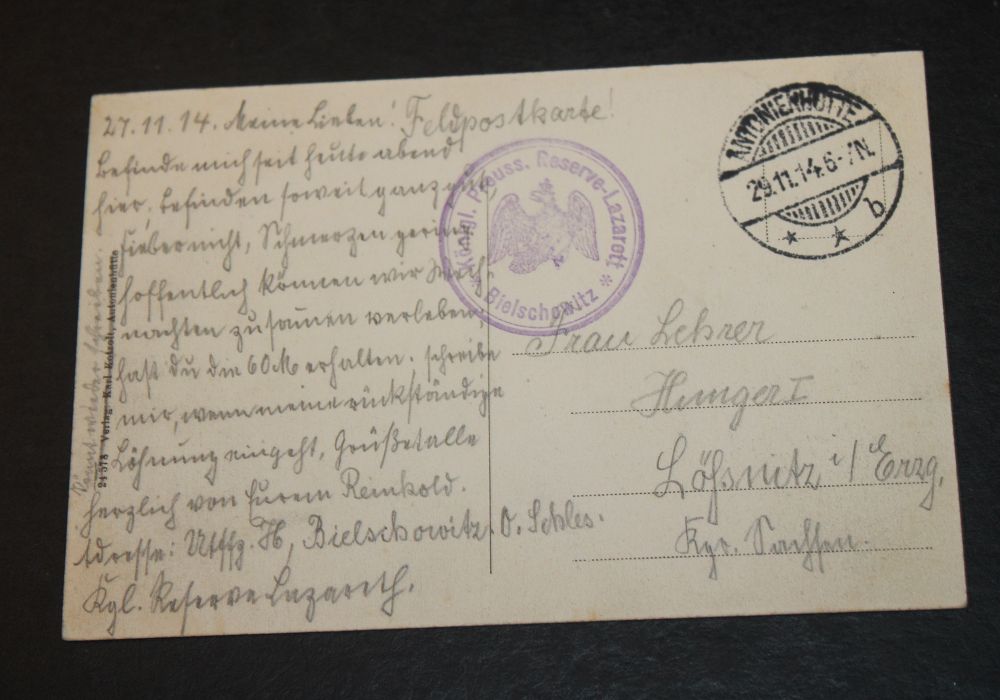 27.11.14. Meine Lieben! Feldpostkarte!
Befinde mich seit heute abend
hier. Befinden soweit ganz gut
Fieber nicht, Schmerzen gering
hoffentlich können wir Weih-
nachten zusamen verleben.
hast du die 60 M erhalten. schreibe
mir, wenn meine rückständige
Löhnung eingeht, Grüßet alle
herzlich von Eurem Reinhold.
Adresse: Utffz. H, Bielschowitz. O. Schles.
Kgl. Reserve Lazareth.
Könnt wieder schreiben
24 578 Verlag Karl Antonienhütte
Königl. Preuss. Reserve-Lazarett
* Bielschowitz *
ANTONIENHÜTTE
29.11.14.6-7N.
* * b
Frau Lehrer
Hunger I
Lößnitz i/ Erzg.
Kgr. Sachsen.